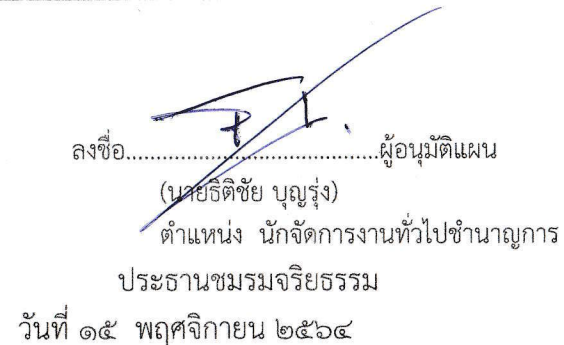 ลงชื่อ........................................ผู้อนุมัติแผน
(นายธิติชัย บุญรุ่ง)
ตำแหน่ง นักจัดการงานทั่วไปชำนาญการ
ประธานชมรมจริยธรรม
วันที่ ๑๕ พฤศจิกายน ๒๕๖๔